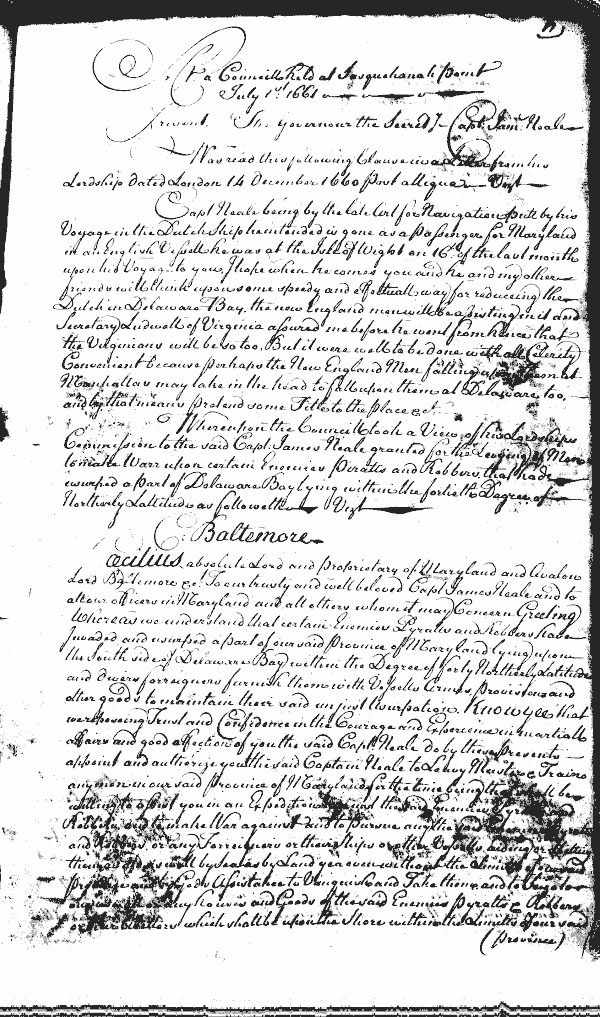 At a Councill held at Sasquehanah point
July 1st 1661
Present. The Governour the Secrets Capt. Jam: Neale
Was read this following Clause in a Letter from his
Lordship Dated London 14 December 1660 post alliqua Vizt
Capt Neale being by the late Act for Navigation putt by his
Voyage in the Dutch Ship he intended is gone as a passenger for Maryland
in an English Vessell he was at the Isle of Wight on 16th of the last month
upon his Voyage to you, I hope when he comes you and he and my other
friends will think upon some speedy and effectuall way for reduceing the
Dutch in Delaware Bay. the new England men will be assisting in it and
Secretary Ludwell of Virginia assured me before he went from hence that
the Virginians will be so too. But it were well to be done with all Celerity
Convenient because perhaps the New England Men falling upon them at
Manhattas may take in the head to fall upon them at Delaware too,
and by that means pretend some Title to the place
Whereupon the Councill took a View of his Lordships
Commission to the said Capt. James Neale granted for the Levying of Men
to make Warr upon certain Enemies Pyratts and Robbers that had
usurped a part of Delaware Bay lying within the fortieth Degree of
Northerly Lattitude as followeth Vizt
Baltemore
Cecilius absolute Lord and Proprietary of Maryland and Avalon
Lord Baltemore &c. To our trusty and well beloved Capt. James Neale and to
all our officers in Maryland and all others whom it may Concern Greeting
Whereas we understand that certain Enemies Pyratts and Robbers have
Invaded and usurped a part of our said Province of Maryland lying upon
the South side of Delaware Bay within the Degree of forty Northerly Latitude
and divers forreigners furnish them with Vessells Armes, provisions and
other goods to maintain their said unjust Usurpation. Know yee that
we reposing Trust and Confidence in the Courage and Experience in martiall
affairs and good affection of you the said Capt. Neale do by these presents
appoint and authorize you the said Captain Neale to Leavy Muster & Traine
any men in our said Province of Maryland for the time being that shall be
willing to assist you in an Expedition against the said Enemies Pyratts and
Robbers, and to make War against and to pursue any the said
and Robbers or any Forreigners or their Ships or other Vessells aiding or
them as well by sea as by Land yea even without the Limits of our said
Province and by Gods Assistance to Vanquish and Take them and to
any houses and Goods of the said Enemies Pyratts & Robbers
or their which shall be upon the Shore within the Limits of our said
(Province)